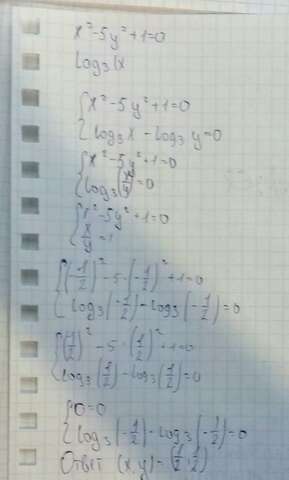 x²-5y²+1=0
log₃(x
{x²-5y²+1=0
{log₃x-log₃y=0
{x²-5y²+1=0
{log₃(x/y)=0
{x²-5y²+1=0
{x/y=1
{(-1/2)²-5·(-1/2)²+1=0
{log₃(-1/2)-log₃(-1/2)=0
{(1/2)²-5·(1/2)²+1=0
{log₃(1/2)-log₃(1/2)=0
{0=0
{log₃(-1/2)-log₃(-1/2)=0
Ответ (x,y)=(1/2,1/2)